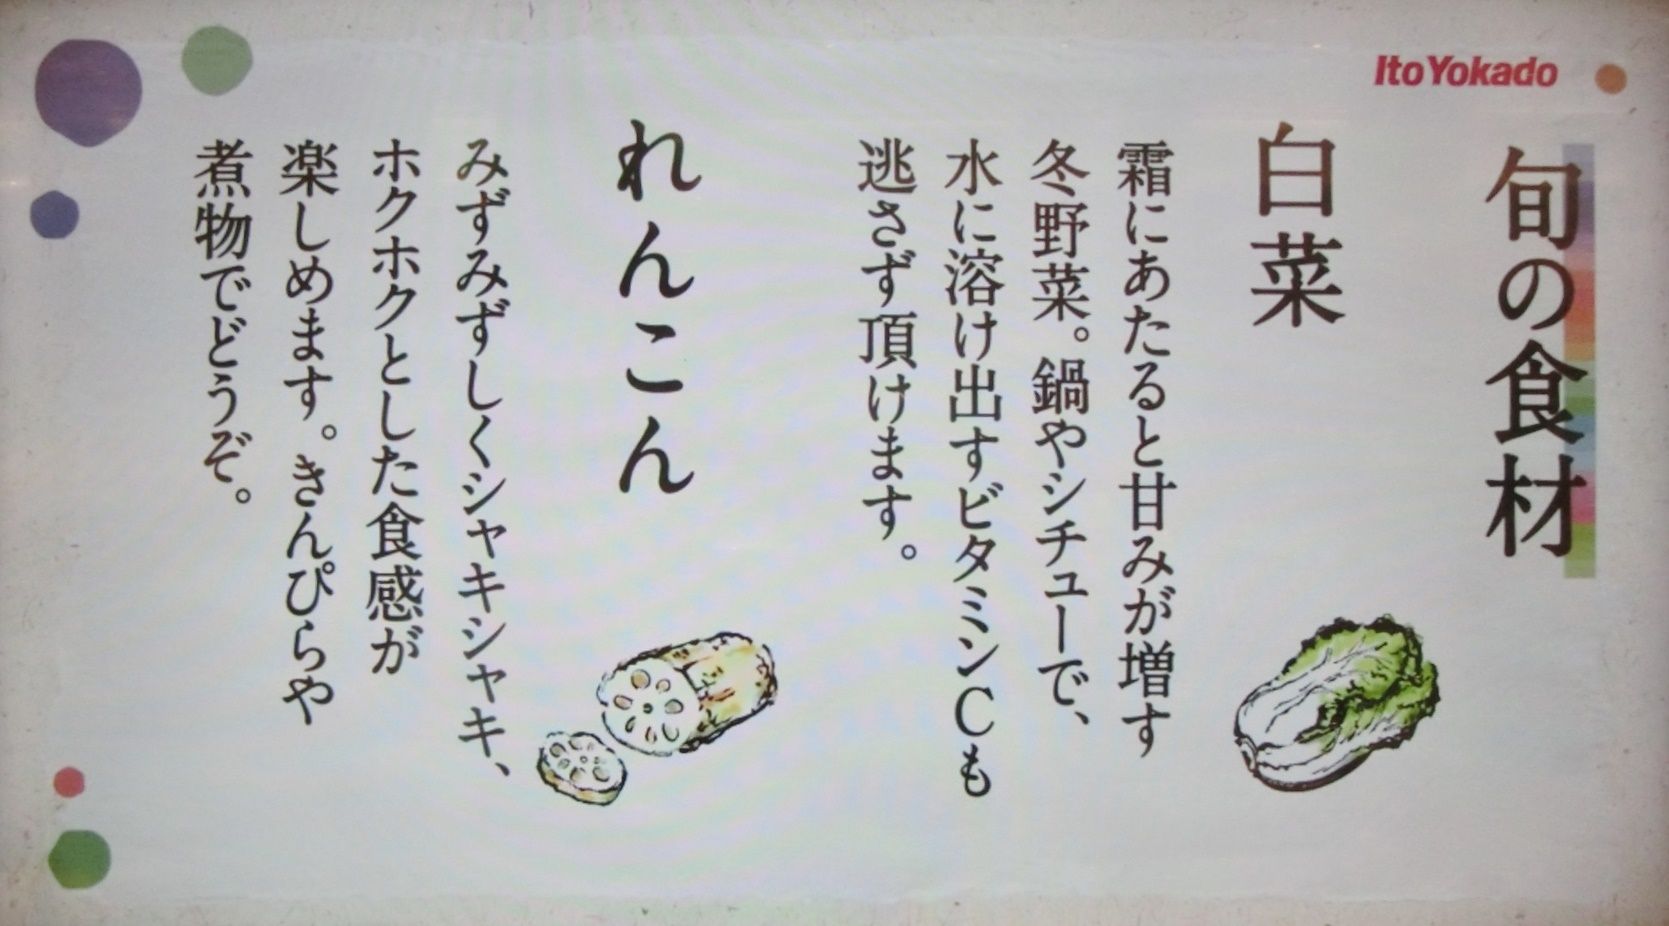 Ito Yokado
旬の食材
白菜
霜にあたると甘みが増す
冬野菜。鍋やシチューで、
水に溶け出すビタミンCも
逃さず頂けます。
れんこん
みずみずしくシャキシャキ、
ホクホクとした食感が
楽しめます。きんぴらや
煮物でどうぞ。